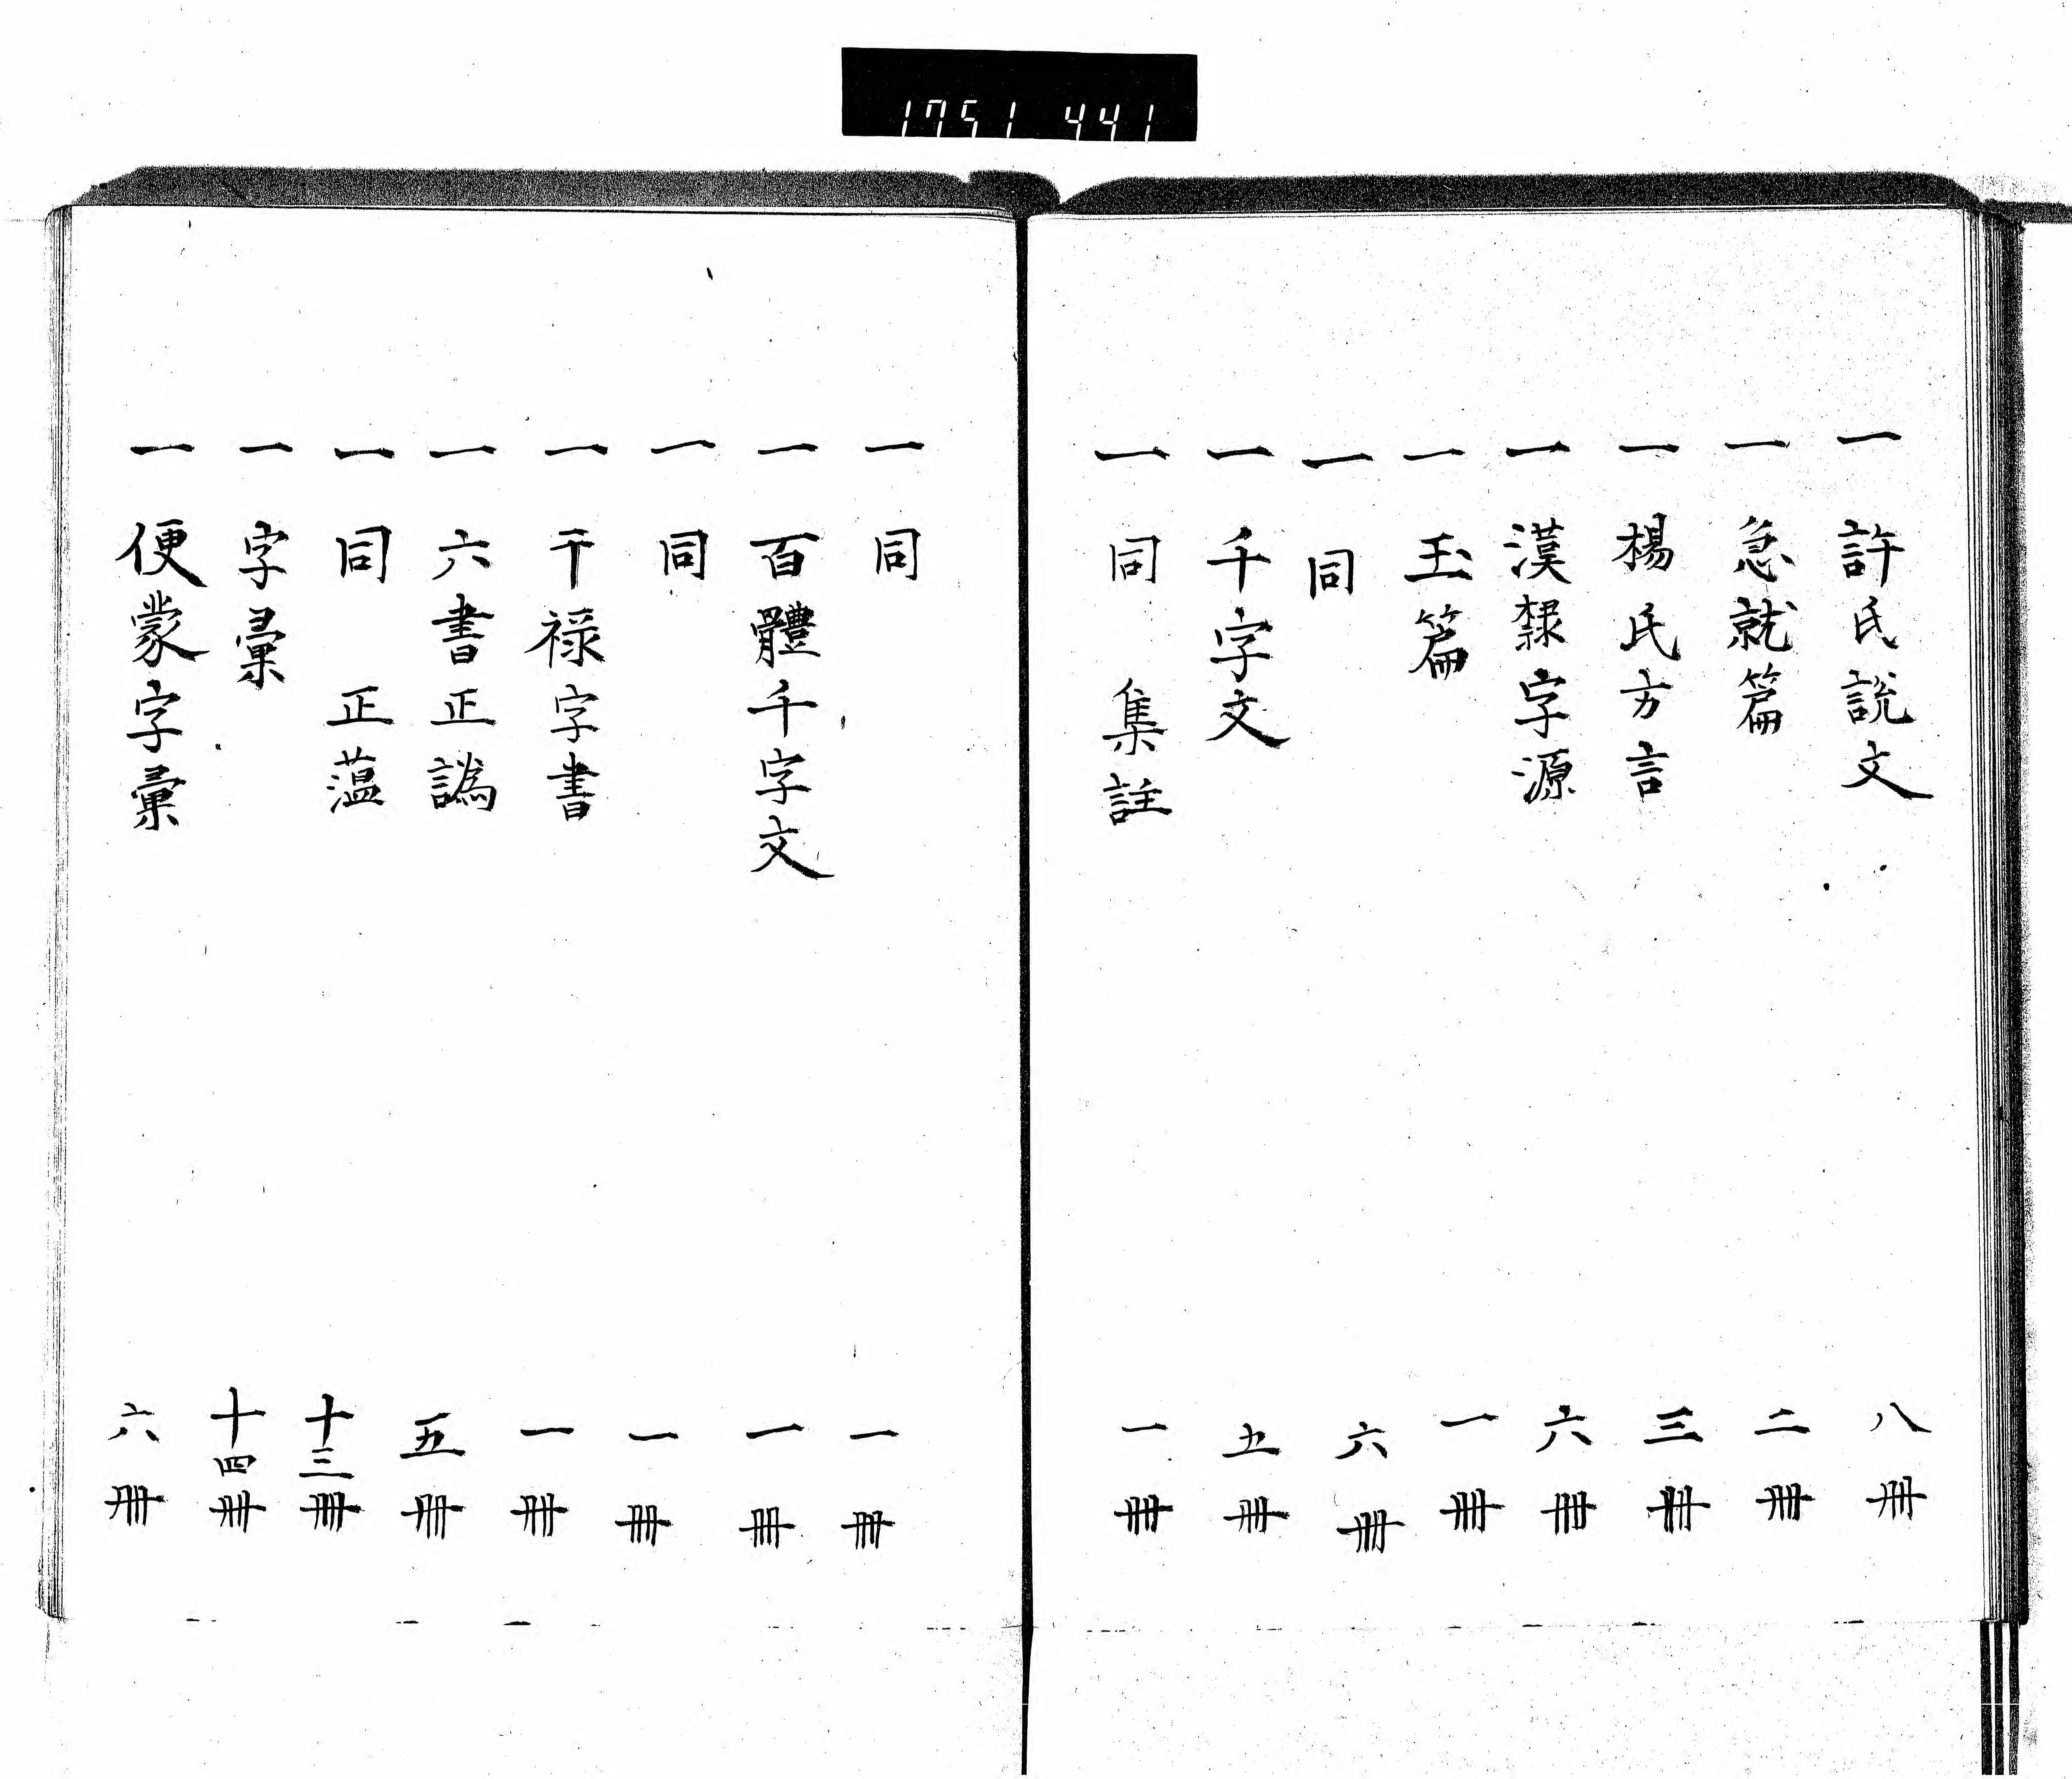 1751 441
一 許氏説文 八冊
一 急就篇 二冊
一 楊氏方言 三冊
一 漢隸字源 六冊
一 玉篇 一冊
一 同 六冊
一 千字文 五冊
一 同 集註 一冊
一 同 一冊
一 百體千字文 一冊
一 同 一冊
一 干禄字書 一冊
一 六書正譌 五冊
一 同 正薀 十三冊
一 字彙 十四冊
一 便蒙字彙 六冊